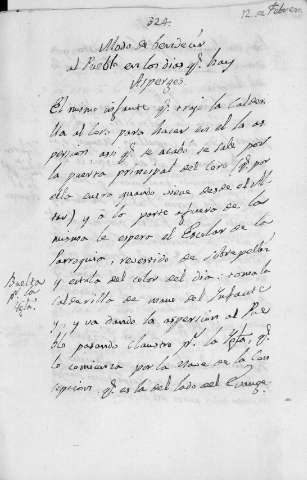 324.
12 de Febrero
Modo de bendecir
al Pueblo en los dias q.e hay
Asperges
El mismo infante q.e trajo la Calder-
illa al Coro para hacer en el la as
persion asi q.e se acabó se sale por
la puerta principal del Coro (q.e por
ella entra quando viene desde el Al-
tar) y a la parte afuera de la
misma le espera el Escolar de la
Parroquia, revestido de sobrepelliz
y estola del color del dia: toma la
calderilla de mano del Infante
y, y va dando la aspersion al Pue
blo pasando Claustro p.r la Igla, q.e
la comienza por la nave de la Con
cepcion q.e es la del lado del Evange-
Buelta
p.r la
Igla.